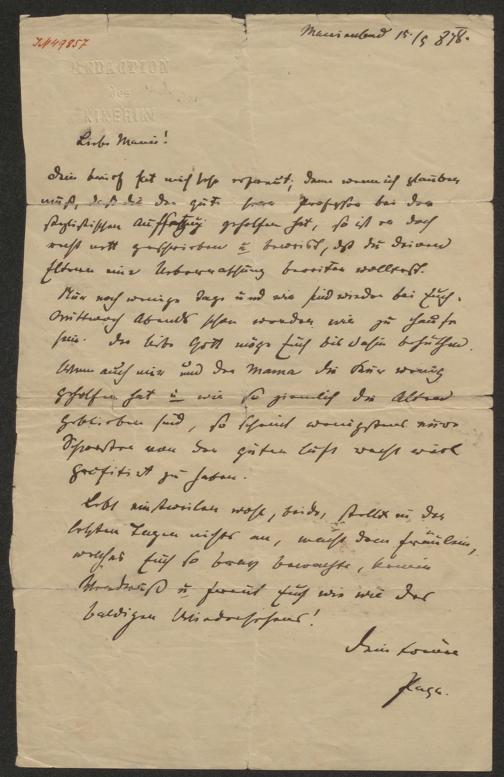 IN 49857
REDACTION
des
KIKERIKI
Marienbad 15/5 878.
Liebe Marie!
Dein Brief hat mich sehr erfreut; denn wenn ich glauben
muß, daß dir der gute Herr Professor bei der
stylistischen Auffassung geholfen hat, so ist er doch
recht nett geschrieben u beweist, daß du deinen
Eltern eine Ueberraschung bereiten wolltest.
Nur noch wenige Tage und wir sind wieder bei Euch.
Mittwoch Abends schon werden wir zu Hause
sein. Der liebe Gott möge Euch bis dahin behüthen.
Wenn auch mir und der Mama die Kur wenig
geholfen hat u wir so ziemlich die Alten
geblieben sind, so scheint wenigstens eure
Schwester von der guten Luft recht viel
profitirt zu haben.
Lebt einstweilen wohl, beide, stellt in den
letzten Tagen nichts an, macht dem Fräulein,
welches Euch so brav bewachte, keinen
Verdruß u freut Euch wie wir des
baldigen Wiedersehens!
Dein treuer
Papa.